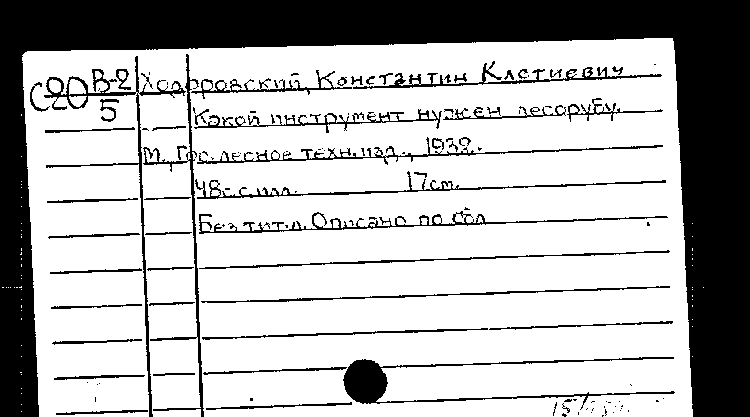 С20 В-2/5 Ходоровский, Константин Кастиевич
Какой инструмент нужен лесорубу.
М., Гос. лесное техн. изд., 1932.
48с. с илл. 17см.
Без тит. л. Описано по обл